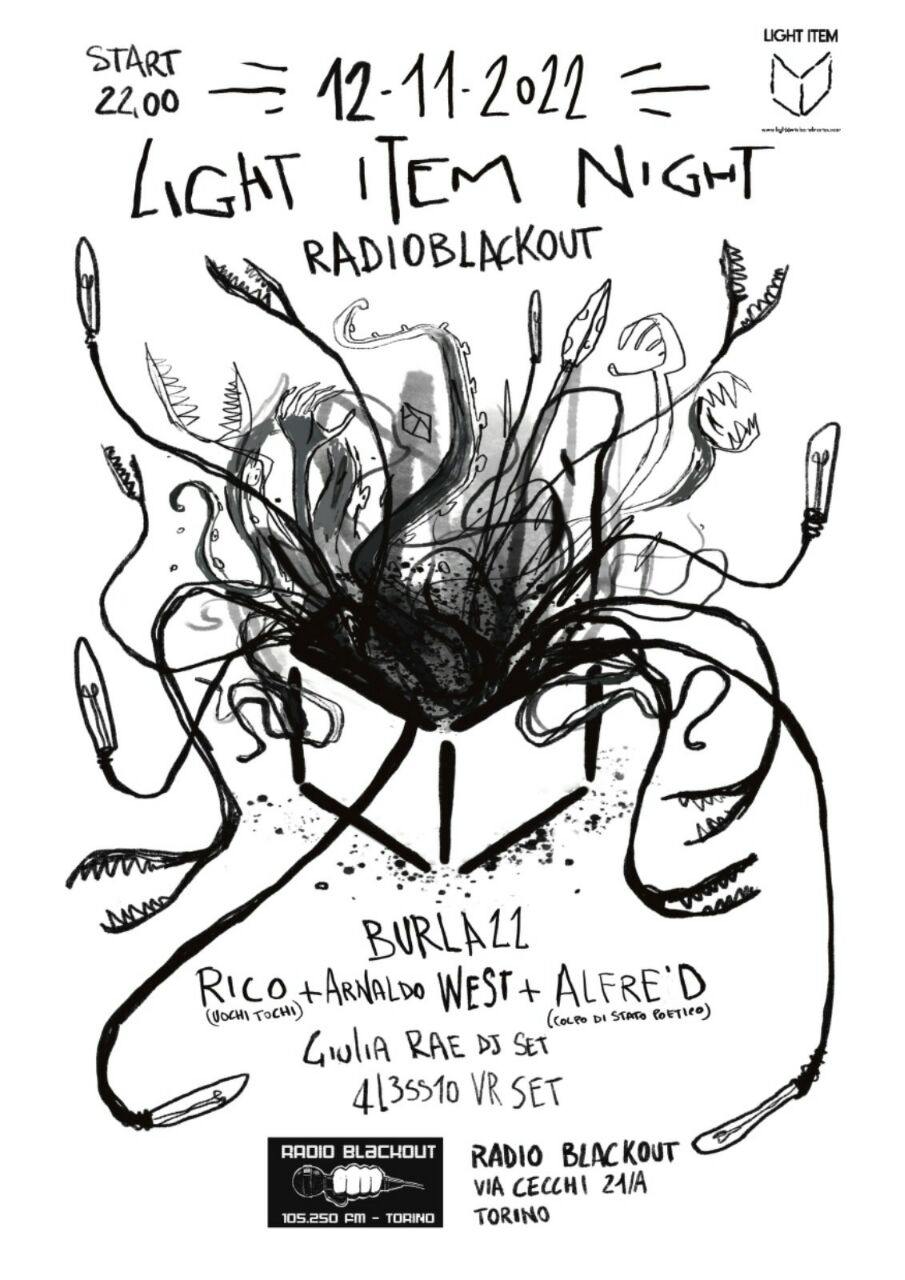 START
22,00
12-11-2022
LIGHT ITEM
LIGHT ITEM NIGHT
RADIOBLACKOUT
BURLA22
RICO + ARNALDO WEST + ALFRE'D
(UOCHI TOCHI) (COLPO DI STATO POETICO)
GIULIA RAE DJ SET
4L3SS10 VR SET
RADIO BLACKOUT
105.250 FM - TORINO
RADIO BLACKOUT
VIA CECCHI 21/A
TORINO